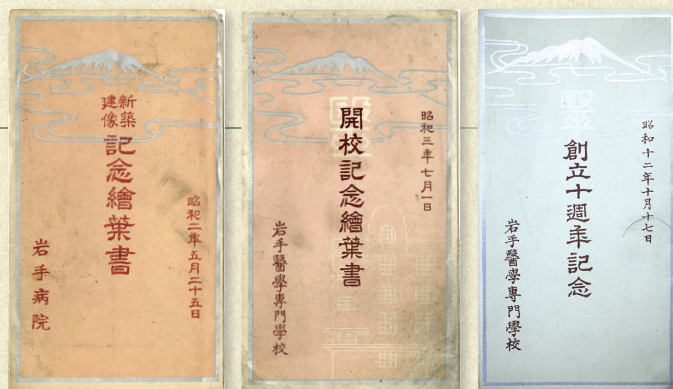 昭和二年五月二十五日
新築
建像
記念繪葉書
岩手病院
昭和三年七月一日
開校記念繪葉書
岩手醫學專門學校
昭和十二年十月十七日
創立十週年記念
岩手醫學專門學校